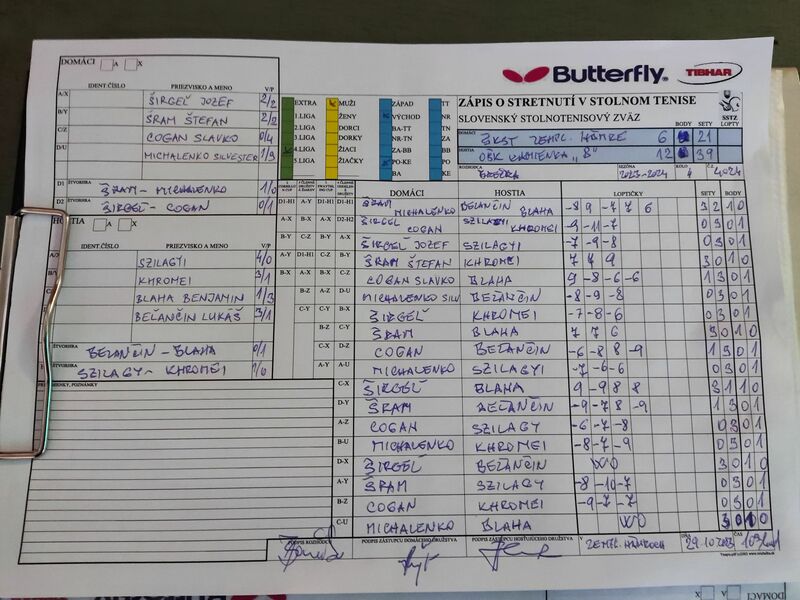 DOMÁCI A X
Butterfly
TIBHAR
IDENT.ČÍSLO PRIEZVISKO A MENO V/P
A/X ŠIRGEĽ JOZEF 2/2
B/Y ŠRAM ŠTEFAN 2/2
C/Z COGAN SLAVKO 0/4
D/U MICHALENKO SILVESTER 1/3
EXTRA MUŽI ZÁPAD TT
1.LIGA ŽENY VÝCHOD NR
2.LIGA DORCI BA-TT TN
3.LIGA DORKY NR-TN ZA
4.LIGA ŽIACI ZA-BB BB
5.LIGA ŽIAČKY PO-KE PO
BA KE
ZÁPIS O STRETNUTÍ V STOLNOM TENISE
SLOVENSKÝ STOLNOTENISOVÝ ZVÄZ
SSTZ
DOMÁCI ŠKST ZEMPL. HÁMRE 6 BODY 21 SETY LOPTY
HOSTIA OŠK KAMIENKA "B" 12 BODY 39 SETY
ROZHODCA SEZÓNA 2023-2024 4
D1 ŠTVORHRA ŠRAM - MICHALENKO 1/0
D2 ŠTVORHRA ŠIRGEĽ - COGAN 0/1
HOSTIA A X
IDENT.ČÍSLO PRIEZVISKO A MENO V/P
SZILAGYI 4/0
KHROMEI 3/1
BLAHA BENJAMIN 1/3
BEĽANČIN LUKÁŠ 3/1
ŠTVORHRA BEĽANČIN - BLAHA 0/1
ŠTVORHRA SZILAGY - KHROMEI 1/0
POZNÁMKY
DOMÁCI HOSTIA LOPTIČKY SETY BODY
ŠRAM MICHALENKO BELANČIN BLAHA -8 9 -7 7 6 3 2 1 0
ŠIRGEĽ COGAN SZILAGYI KHROMEI -9 -11 -7 0 3 0 1
ŠIRGEĽ JOZEF SZILAGYI -7 -9 -8 0 3 0 1
ŠRAM ŠTEFAN KHROMEI 7 4 9 3 0 1 0
COGAN SLAVKO BLAHA 9 -8 -6 -6 1 3 0 1
MICHALENKO SILV BEĽANČIN -8 -9 -8 0 3 0 1
ŠIRGEĽ KHROMEI -7 -8 -6 0 3 0 1
ŠRAM BLAHA 7 7 6 3 0 1 0
COGAN BEĽANČIN -6 -8 8 -9 1 3 0 1
MICHALENKO SZILAGYI -7 -6 -6 0 3 0 1
C-X ŠIRGEĽ BLAHA 9 -9 8 8 3 1 1 0
D-Y ŠRAM BEĽANČIN -9 -7 8 -9 1 3 0 1
A-Z COGAN SZILAGY -6 -7 -8 0 3 0 1
B-U MICHALENKO KHROMEI -8 -7 -9 0 3 0 1
D-X ŠIRGEĽ BEĽANČIN WO 3 0 1 0
A-Y ŠRAM SZILAGY -8 -10 -7 0 3 0 1
B-Z COGAN KHROMEI -9 -7 -7 0 3 0 1
C-U MICHALENKO BLAHA WO 3 0 1 0
PODPIS ROZHODCU PODPIS ZÁSTUPCU DOMÁCEHO DRUŽSTVA PODPIS ZÁSTUPCU HOSŤUJÚCEHO DRUŽSTVA V ZEMPL. HÁMROCH DŇA 29.10.2023 ČAS